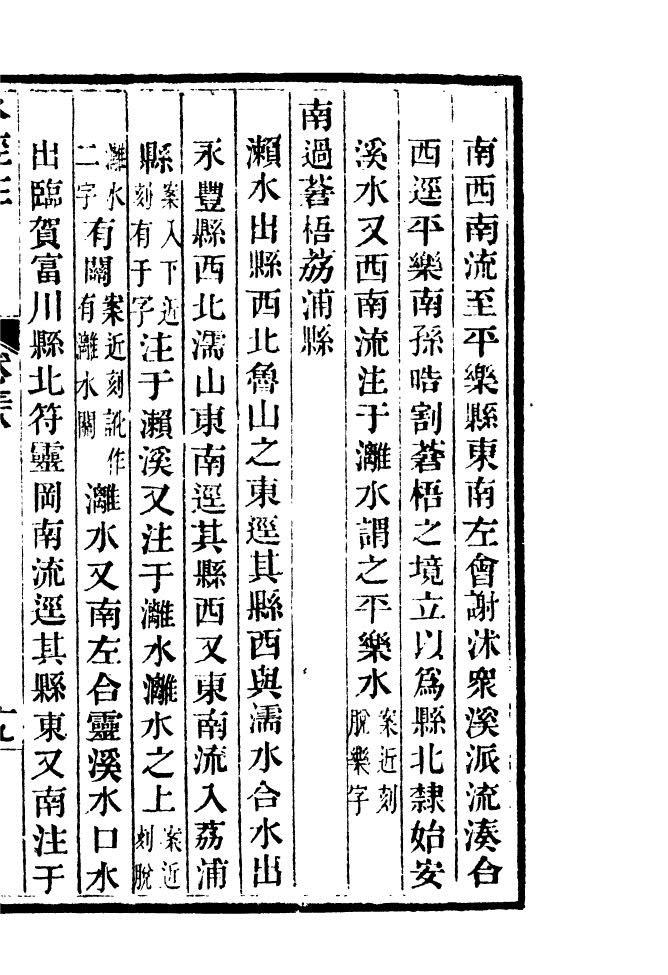 南西南流至平樂縣東南左會謝沭衆溪派流湊合
西逕平樂南孫晧割蒼梧之境立以爲縣北隸始安
溪水又西南流注于灕水謂之平樂水案近刻脫樂字
南過蒼梧荔浦縣
瀨水出縣西北魯山之東逕其縣西與濡水合水出
永豐縣西北濡山東南逕其縣西又東南流入荔浦
縣案入下近刻有于字注于瀨溪又注于灕水灕水之上案近刻脫
灕水二字有關案近刻訛作有灕水關灕水又南左合靈溪水口水
出臨賀富川縣北符靈岡南流逕其縣東又南注于